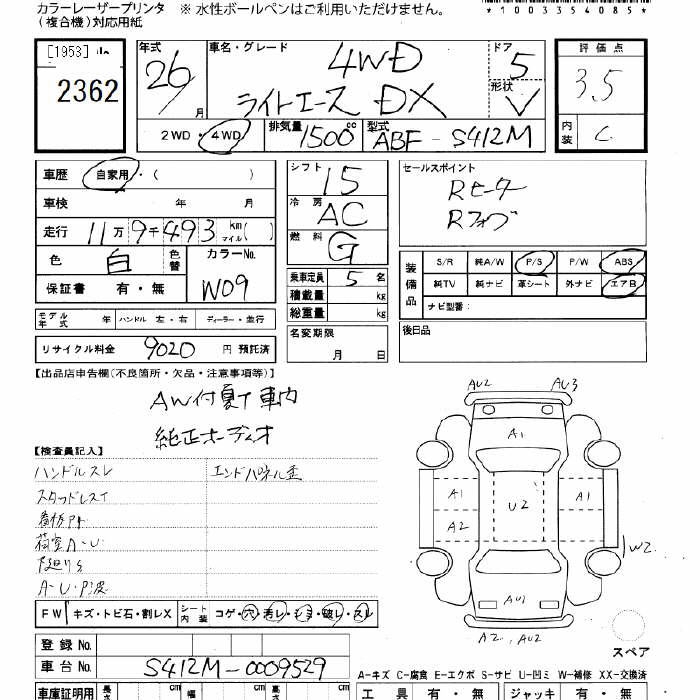 カラーレーザープリンタ
(複合機)対応用紙
※ 水性ボールペンはご利用いただけません。
*1003354085*
[1953]
2362
年式
26/
月
車名・グレード
4WD
ライトエース DX
ドア
5
形状
V
評価点
3.5
内装
C
2WD・4WD
排気量
1500
cc
型式
ABF-S412M
車歴
自家用・( )
車検 年 月
走行 11万9千493 km マイル( )
色 白 色替
カラーNo.
W09
保証書 有・無
シフト
I5
冷房
AC
燃料
G
乗車定員 5 名
積載量 kg
総重量 kg
名変期限
月 日
セールスポイント
Rヒーター
Rフォグ
装備品
S/R 純A/W P/S P/W ABS
純TV 純ナビ 革シート 外ナビ エアB
ナビ型番:
後日品
モデル年式 年 ハンドル 左・右 ディーラー・並行
リサイクル料金 9020 円 預託済
【出品店申告欄(不良箇所・欠品・注意事項等)】
AW付夏T車内
純正オーディオ
【検査員記入】
ハンドルスレ
エンドパネル歪
スタッドレスT
荷室A-U
A-U・P波
FW キズ・トビ石・割レX
シート内装 コゲ・穴・汚レ・シミ・破レ・スレ
登録No.
車台No. S412M-0009529
AU2 AU3
A1
A1
U2
A1
A2
W2
AU1
A2, AU2
スペア
A-キズ C-腐食 E-エクボ S-サビ U-凹ミ W-補修 XX-交換済
車庫証明用 長さ cm 幅 cm 高さ cm
工具 有・無 ジャッキ 有・無